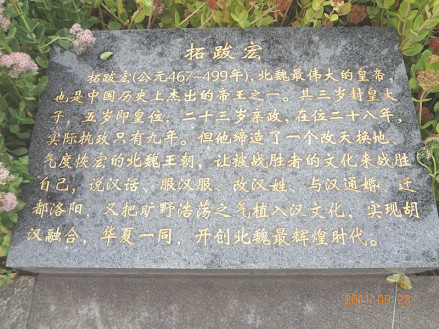 拓跋宏
拓跋宏(公元467~499年),北魏最伟大的皇帝,
也是中国历史上杰出的帝王之一。其三岁封皇太
子,五岁即皇位,二十三岁亲政,在位二十八年,
实际执政只有九年。但他缔造了一个改天换地、
气度恢宏的北魏王朝,让被战胜者的文化来战胜
自己,说汉话、服汉服、改汉姓、与汉通婚、迁
都洛阳,又把旷野浩荡之气植入汉文化,实现胡
汉融合,华夏一同,开创北魏最辉煌时代。
2011.09.23